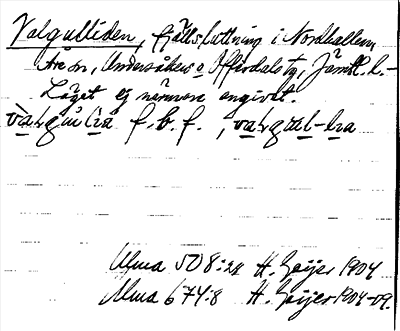 Valgulliden, fjällsluttning i Nordhallen,
Åre sn, Undersåkers o Offerdals tg, Jämtl. l.–
Läget ej närmare angivet.
f. b. f.,
Ulma 508:24 H. Geijer 1904
Ulma 674:8 H. Geijer 1904-09.